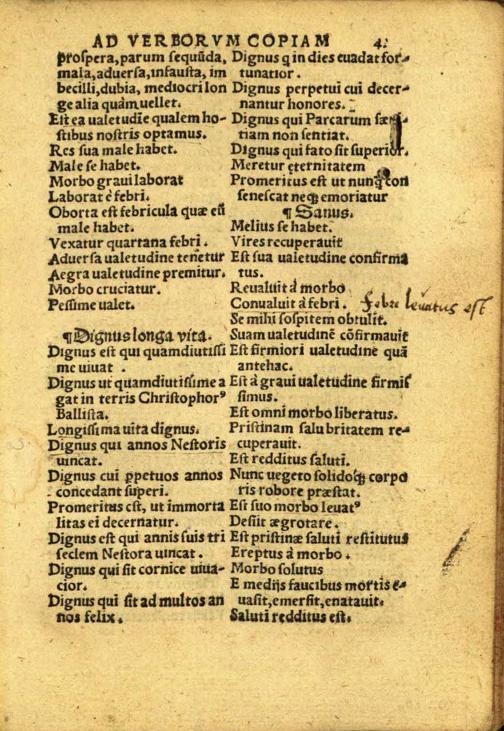 AD VERBORVM COPIAM 4.
prospera, parum sequūda,
mala, aduersa, infausta, im
becilli, dubia, mediocri lon
ge alia quàm uellet.
Est ea ualetudīe qualem ho-
stibus nostris optamus.
Res sua male habet.
Male se habet.
Morbo graui laborat
Laborat è febri.
Oborta est febricula quæ eū
male habet.
Vexatur quartana febri.
Aduersa ualetudine tenetur
Aegra ualetudine premitur.
Morbo cruciatur.
Pessime ualet.
¶ Dignus longa vita.
Dignus est qui quamdiutissi
me uiuat.
Dignus ut quamdiutissime a
gat in terris Christophorꝰ
Ballista.
Longissima uita dignus.
Dignus qui annos Nestoris
uincat.
Dignus cui ꝑpetuos annos
concedant superi.
Promeritus est, ut immorta
litas ei decernatur.
Dignus est qui annis suis tri
seclem Nestora uincat.
Dignus qui sit cornice uiua-
cior.
Dignus qui sit ad multos an
nos felix.
Dignus q in dies euadat for-
tunatior.
Dignus perpetui cui decer-
nantur honores.
Dignus qui Parcarum
tiam non sentiat.
Dignus qui fato sit superior.
Meretur eternitatem
Promeritus est ut nunꝗ̃ con
senescat neqꝫ emoriatur
¶ Sanus.
Melius se habet.
Vires recuperauit
Est sua ualetudine confirma
tus.
Reualuit à morbo
Conualuit à febri. febre leuatus est
Se mihi sospitem obtulit.
Suam ualetudinē cōfirmauit
Est firmiori ualetudine quā
antehac.
Est à graui ualetudine firmis
simus.
Est omni morbo liberatus.
Pristinam salubritatem re-
cuperauit.
Est redditus saluti.
Nunc uegeto solidoqꝫ corpo
ris robore præstat.
Est suo morbo leuatꝰ
Desiit ægrotare.
Est pristinæ saluti restitutus
Ereptus à morbo.
Morbo solutus
E medijs faucibus mortis e-
uasit, emersit, enatauit.
Saluti redditus est.